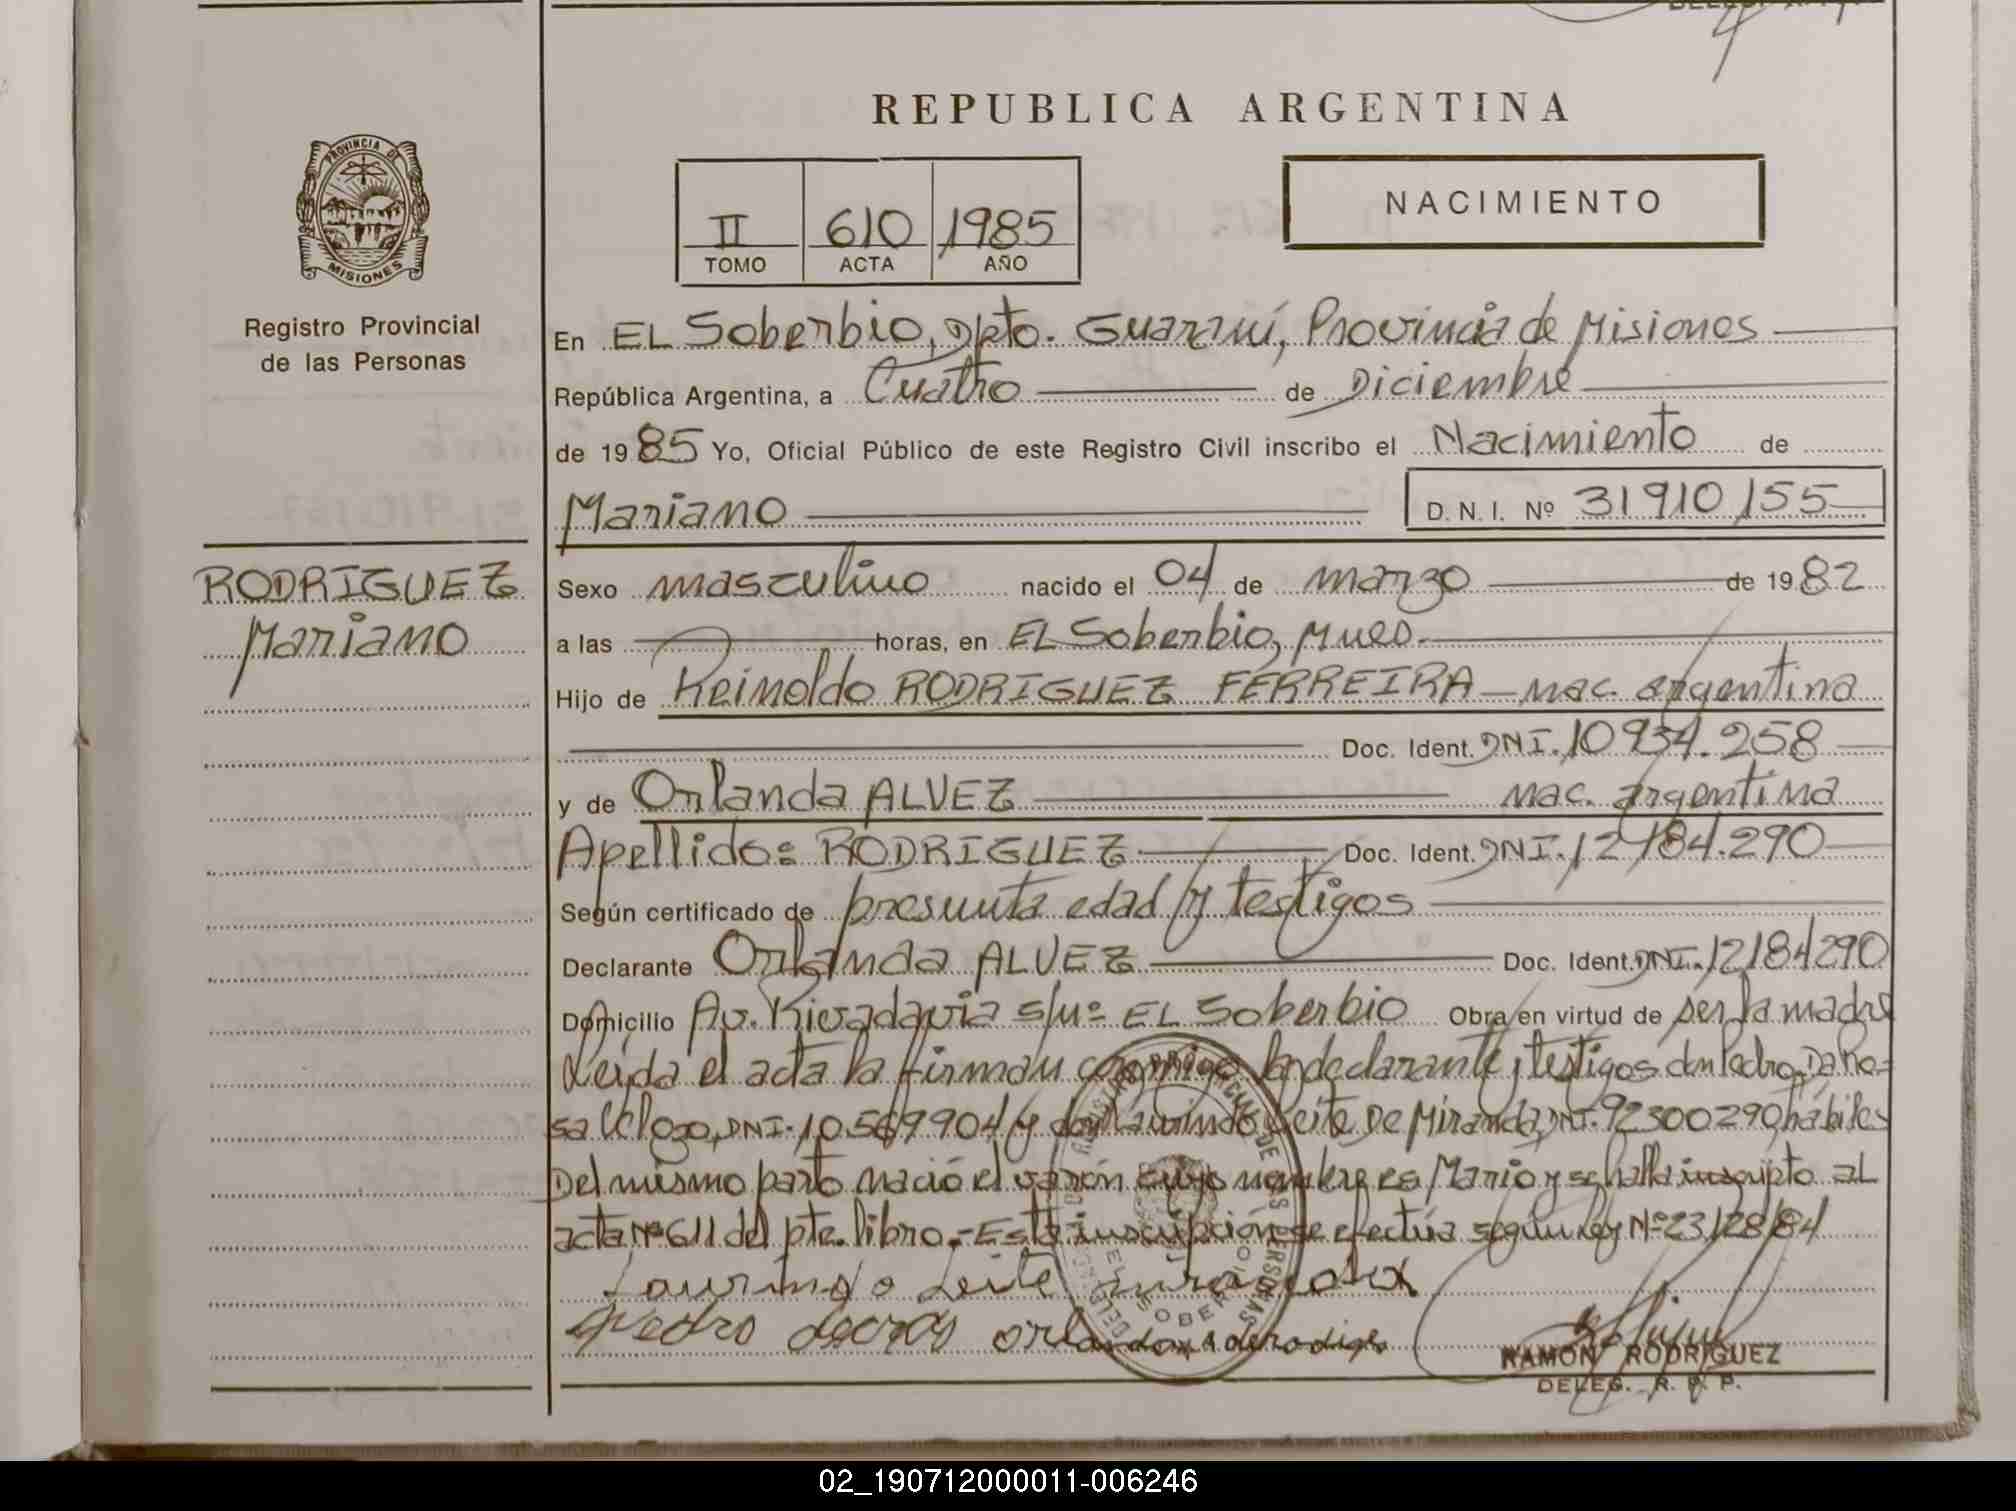 REPUBLICA ARGENTINA
PROVINCIA DE
MISIONES
Registro Provincial
de las Personas
II 610 1985
TOMO ACTA AÑO
NACIMIENTO
En EL Soberbio, Dpto. Guaraní, Provincia de Misiones
República Argentina, a Cuatro de Diciembre
de 1985 Yo, Oficial Público de este Registro Civil inscribo el Nacimiento de
Mariano D.N.I. Nº 31910155
RODRIGUEZ
Mariano
Sexo masculino nacido el 04 de marzo de 1982
a las horas, en EL Soberbio, Mnes.
Hijo de Reinoldo RODRIGUEZ FERREIRA nac. argentina
Doc. Ident. DNI. 10934.258
y de Orlanda ALVEZ nac. argentina
Apellido: RODRIGUEZ Doc. Ident. DNI. 12184.290
Según certificado de presunta edad y testigos
Declarante Orlanda ALVEZ Doc. Ident. DNI. 12184290
Domicilio Av. Rivadavia s/nº EL Soberbio Obra en virtud de ser la madre
Leída el acta la firman conmigo la declarante y testigos don Pedro Da Ro=
sa Velozo, DNI. 10.569904 y don Laurindo Leite De Miranda, DNI. 92300290, hábiles
Del mismo parto nació el varón cuyo nombre es Mario y se halla inscripto al
acta nº 611 del pte. libro.- Esta inscripcion se efectúa según ley Nº 23128/84
Laurindo Leite
Pedro
RAMON RODRIGUEZ
DELEG. R. P. P.
EL SOBERBIO
02_190712000011-006246